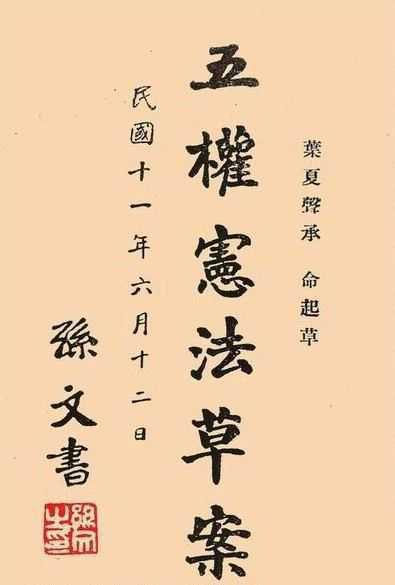 葉夏聲承　命起草
五權憲法草案
民國十一年六月十二日
孫文書
孫文之印